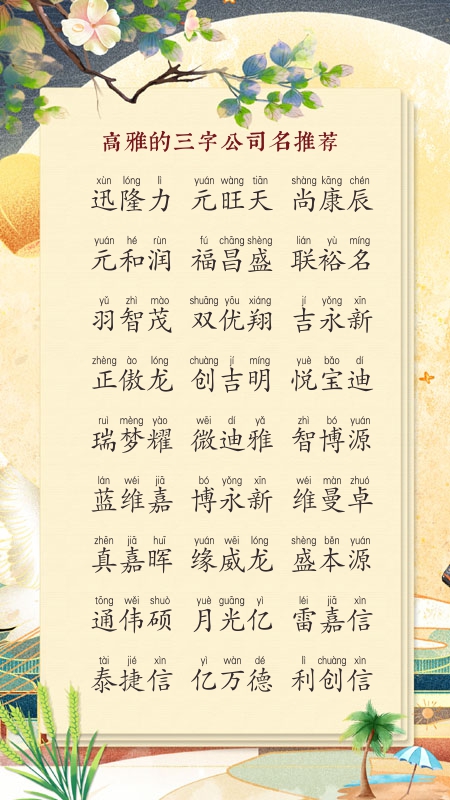 高雅的三字公司名推荐
xùn lóng lì yuán wàng tiān shàng kāng chén
迅隆力 元旺天 尚康辰
yuán hé rùn fú chāng shèng lián yù míng
元和润 福昌盛 联裕名
yǔ zhì mào shuāng yōu xiáng jí yǒng xīn
羽智茂 双优翔 吉永新
zhèng ào lóng chuàng jí míng yuè bǎo dí
正傲龙 创吉明 悦宝迪
ruì mèng yào wēi dí yǎ zhì bó yuán
瑞梦耀 微迪雅 智博源
lán wéi jiā bó yǒng xīn wéi màn zhuó
蓝维嘉 博永新 维曼卓
zhēn jiā huī yuán wēi lóng shèng běn yuán
真嘉晖 缘威龙 盛本源
tōng wěi shuò yuè guāng yì léi jiā xìn
通伟硕 月光亿 雷嘉信
tài jié xìn yì wàn dé lì chuàng xìn
泰捷信 亿万德 利创信